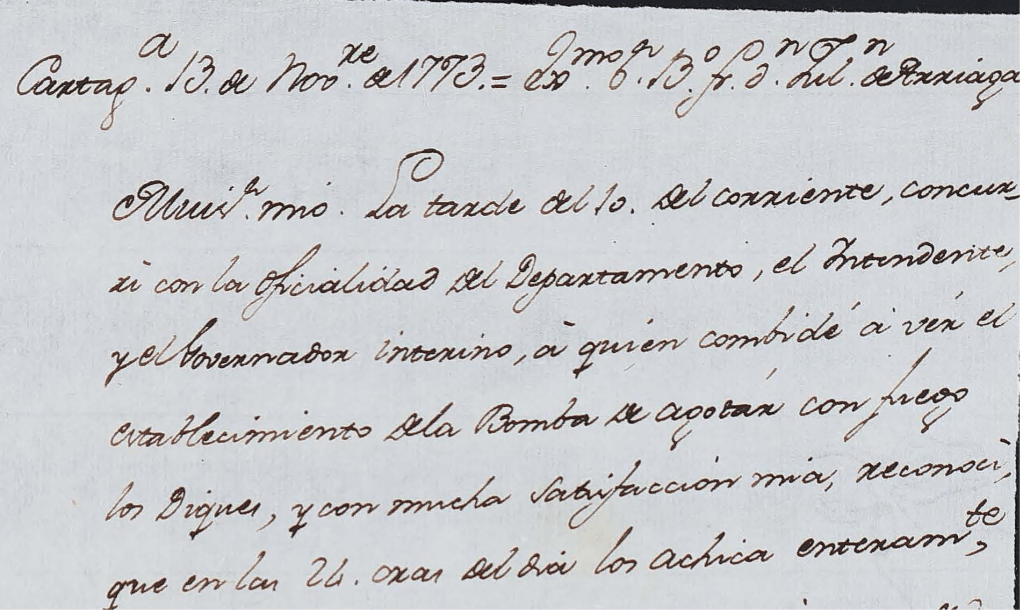 Cartag.a 13. de Nov.re de 1773. = Ex.mo S.r B.o Fr. D.n Jul.n de Arriaga
Mui S.r mio. La tarde del 10. del corriente, concur-
rì con la oficialidad del Departamento, el Intendente,
y el Governador interino, à quien combidé a vér el
establecimiento dela Bomba de agotár con fuego
los Diques, y con mucha satisfacción mia, reconocì,
que en las 24. oras del dia los achica enteram.te,